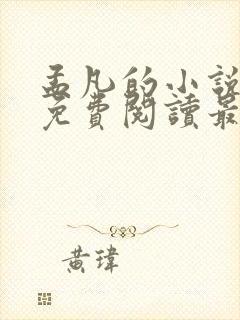 孟凡的小說
免費閱讀最
黃瑋